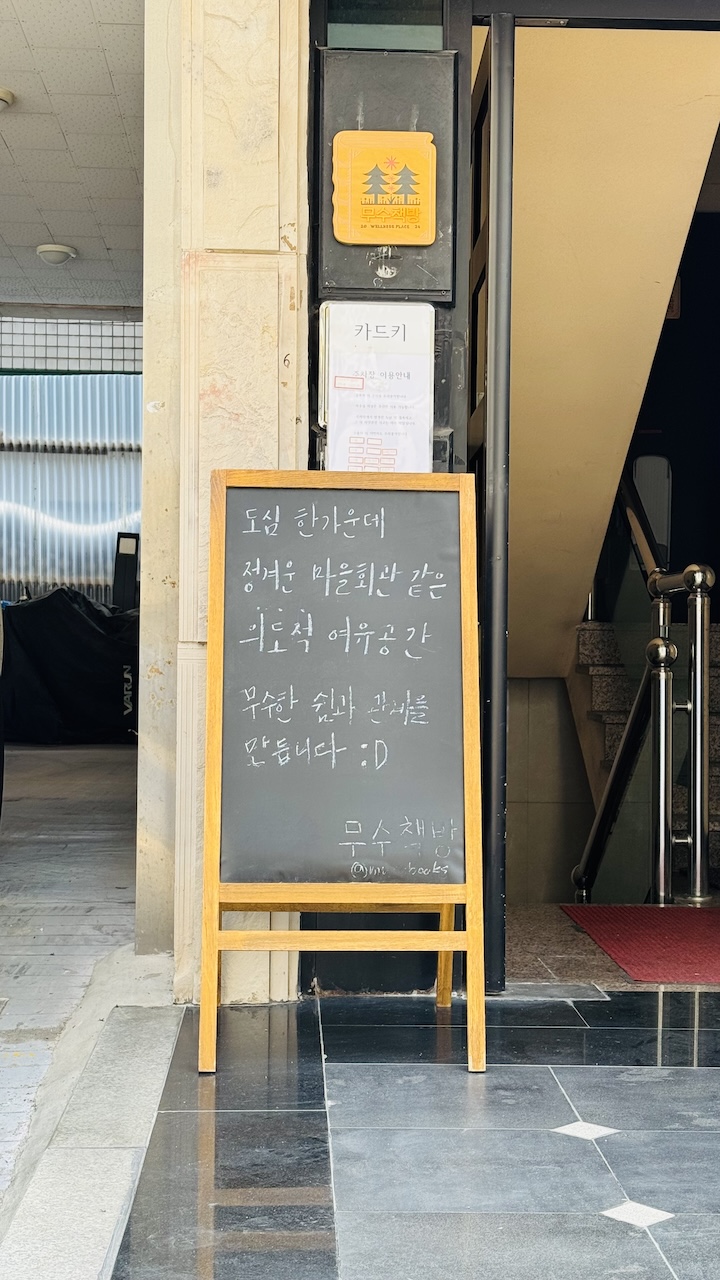 무수책방
WELLNESS PLACE
카드키
이용안내
6
도심 한가운데
정겨운 마을회관 같은
의도적 여유공간
무수한 쉼과 관계를
만듭니다 :D
무수책방
VARUN